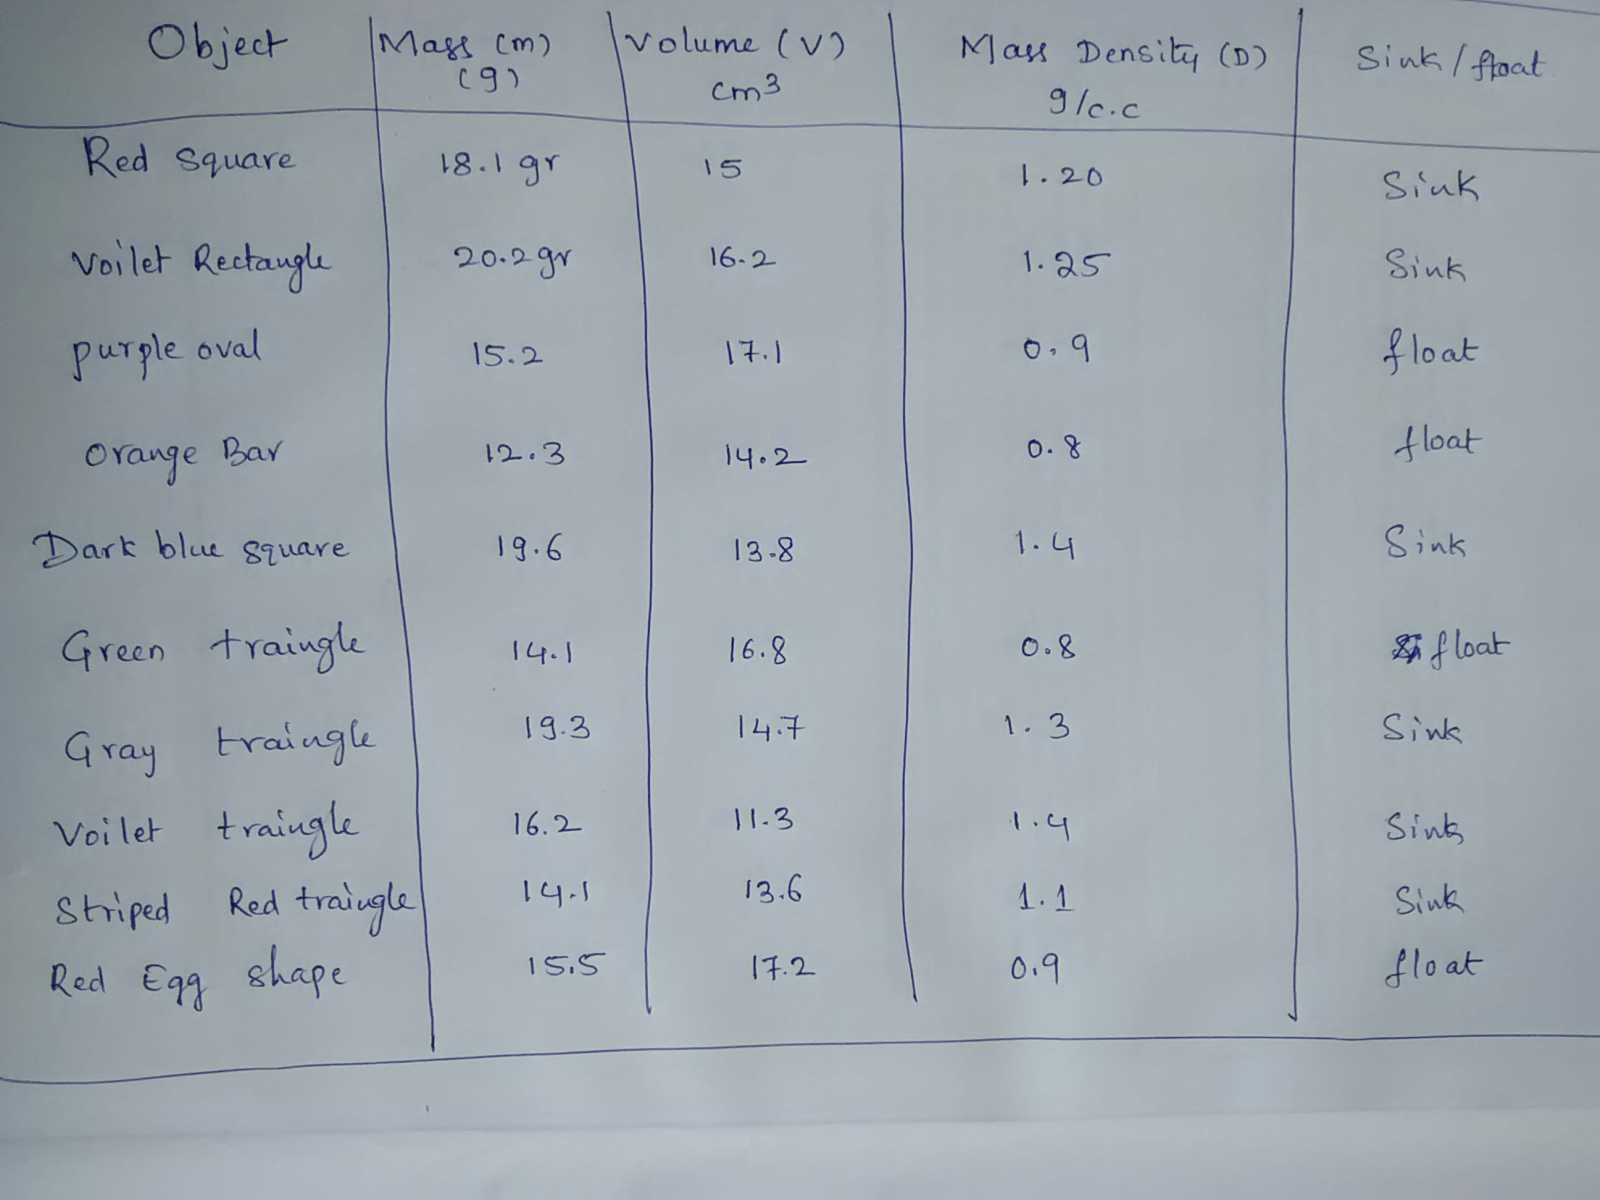 Object Mass (m) Volume (V) Mass Density (D) Sink/float
(g) cm3 g/c.c
Red Square 18.1 gr 15 1.20 Sink
Voilet Rectangle 20.2gr 16.2 1.25 Sink
purple oval 15.2 17.1 0.9 float
Orange Bar 12.3 14.2 0.8 float
Dark blue square 19.6 13.8 1.4 Sink
Green traingle 14.1 16.8 0.8 float
Gray traingle 19.3 14.7 1.3 Sink
Voilet traingle 16.2 11.3 1.4 Sink
Striped Red traingle 14.1 13.6 1.1 Sink
Red Egg shape 15.5 17.2 0.9 float